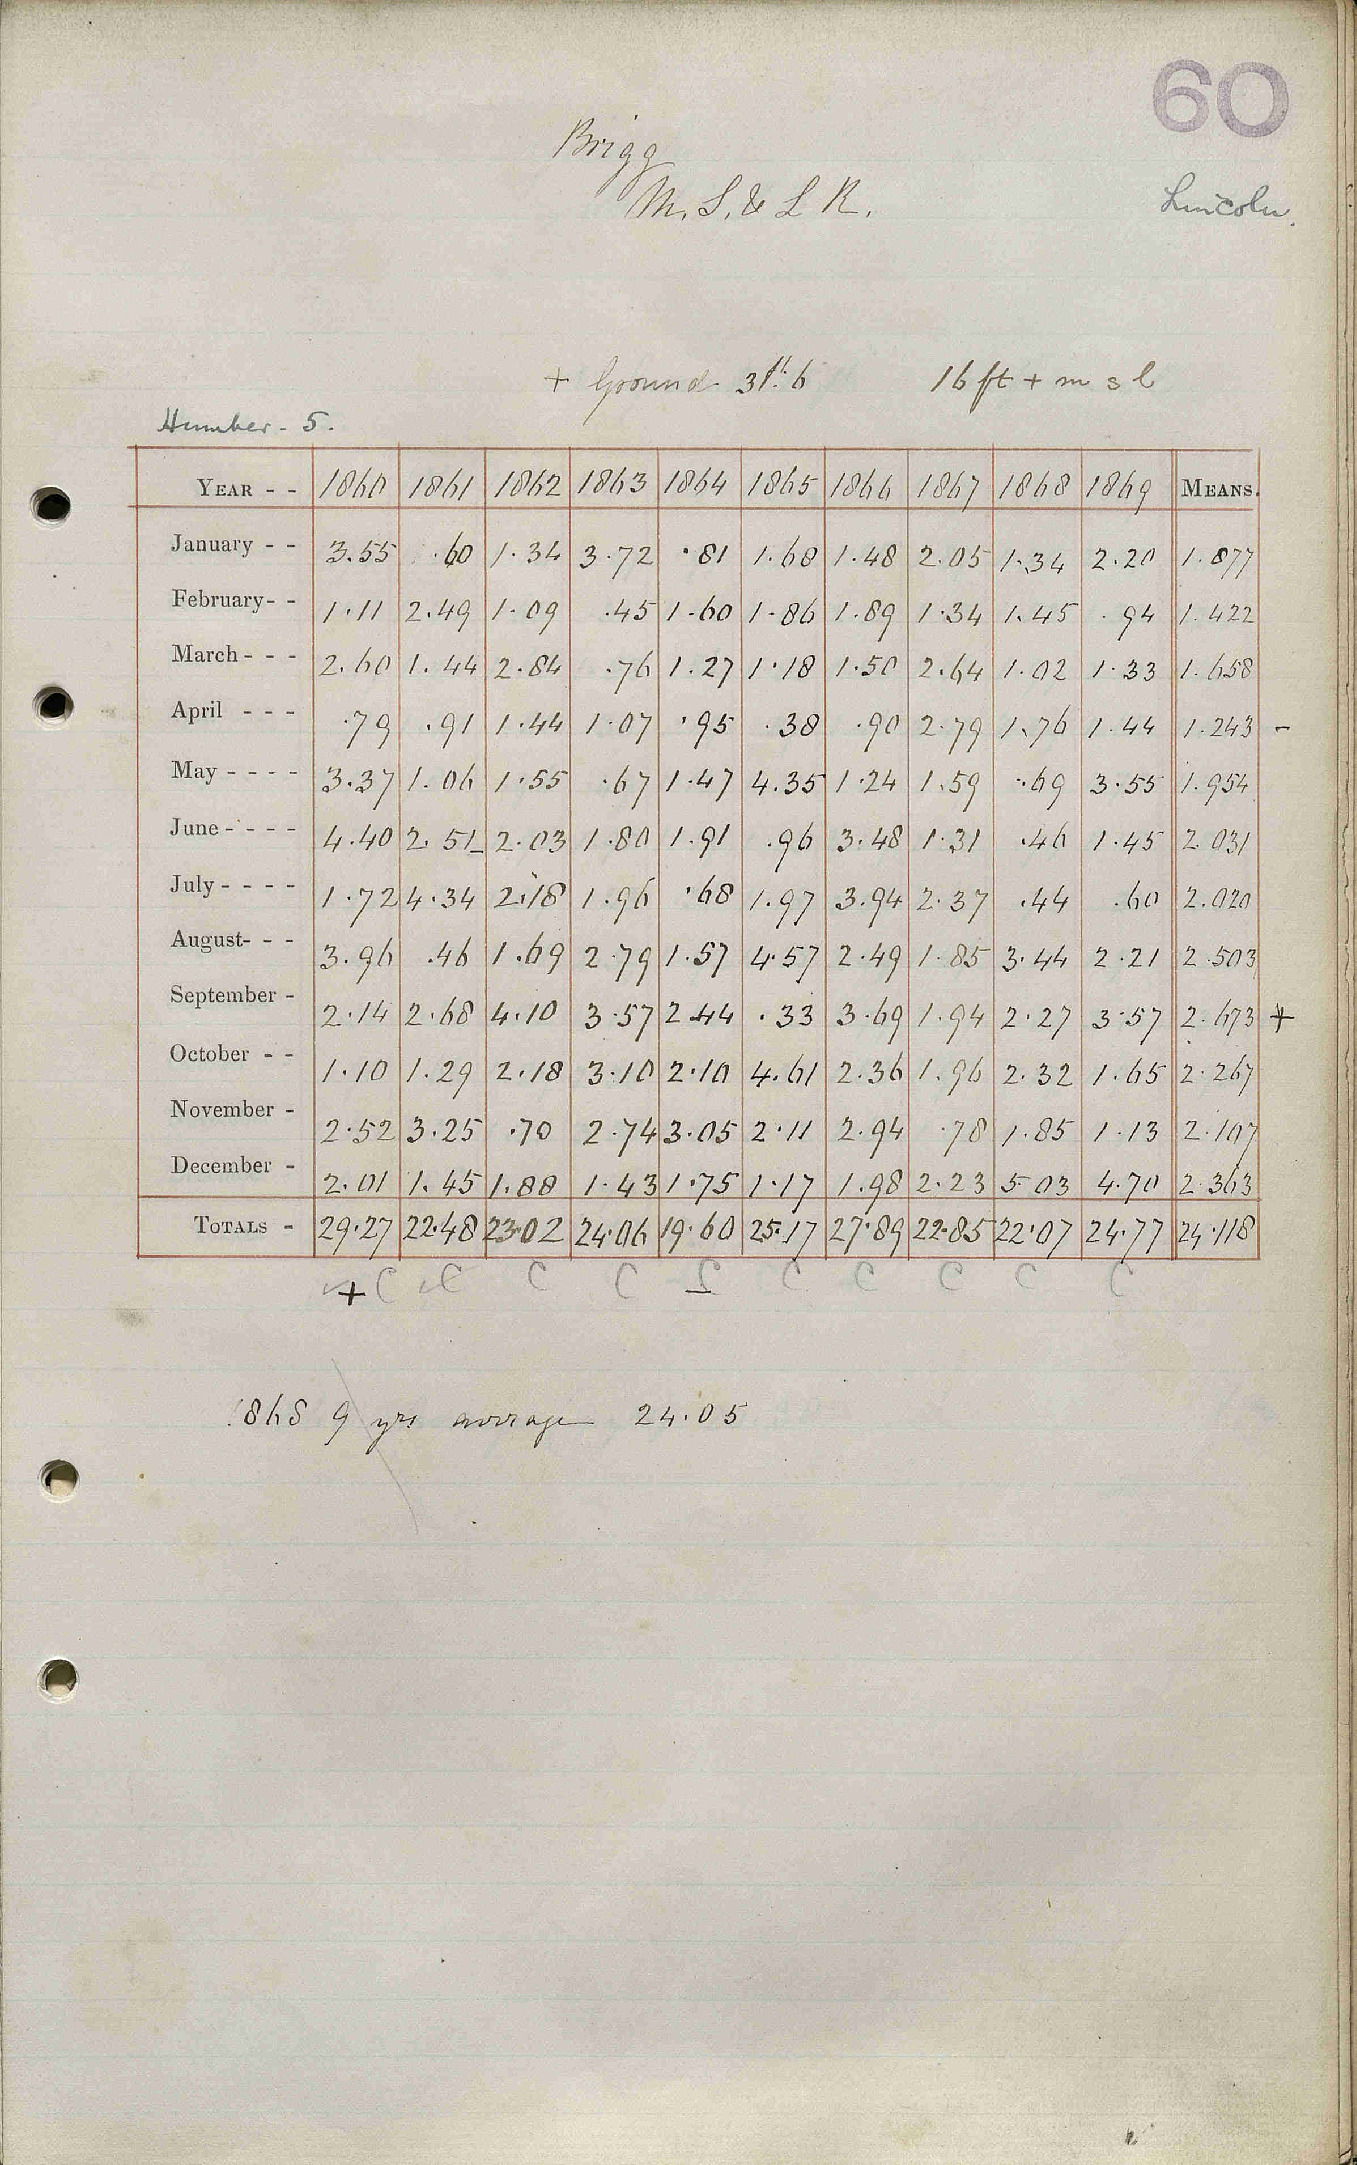 60
Brigg
M. S. & L R.
Lincoln.
+ Ground 3ft. 6 16 ft + m s l
Humber - 5.
YEAR - - 1860 1861 1862 1863 1864 1865 1866 1867 1868 1869 MEANS.
January - - 3.55 .60 1.34 3.72 .81 1.68 1.48 2.05 1.34 2.20 1.877
February- - 1.11 2.49 1.09 .45 1.60 1.86 1.89 1.34 1.45 .94 1.422
March - - - 2.60 1.44 2.84 .76 1.27 1.18 1.50 2.64 1.02 1.33 1.658
April - - - .79 .91 1.44 1.07 .95 .38 .90 2.79 1.76 1.44 1.243 -
May - - - - 3.37 1.06 1.55 .67 1.47 4.35 1.24 1.59 .69 3.55 1.954
June - - - - 4.40 2.51 2.03 1.80 1.91 .96 3.48 1.31 .46 1.45 2.031
July - - - - 1.72 4.34 2.18 1.96 .68 1.97 3.94 2.37 .44 .60 2.020
August- - - 3.96 .46 1.69 2.79 1.57 4.57 2.49 1.85 3.44 2.21 2.503
September - 2.14 2.68 4.10 3.57 2.44 .33 3.69 1.94 2.27 3.57 2.673 +
October - - 1.10 1.29 2.18 3.10 2.10 4.61 2.36 1.96 2.32 1.65 2.267
November - 2.52 3.25 .70 2.74 3.05 2.11 2.94 .78 1.85 1.13 2.107
December - 2.01 1.45 1.88 1.43 1.75 1.17 1.98 2.23 5.03 4.70 2.363
TOTALS - 29.27 22.48 23.02 24.06 19.60 25.17 27.89 22.85 22.07 24.77 24.118
+
1868 9 yrs average 24.05